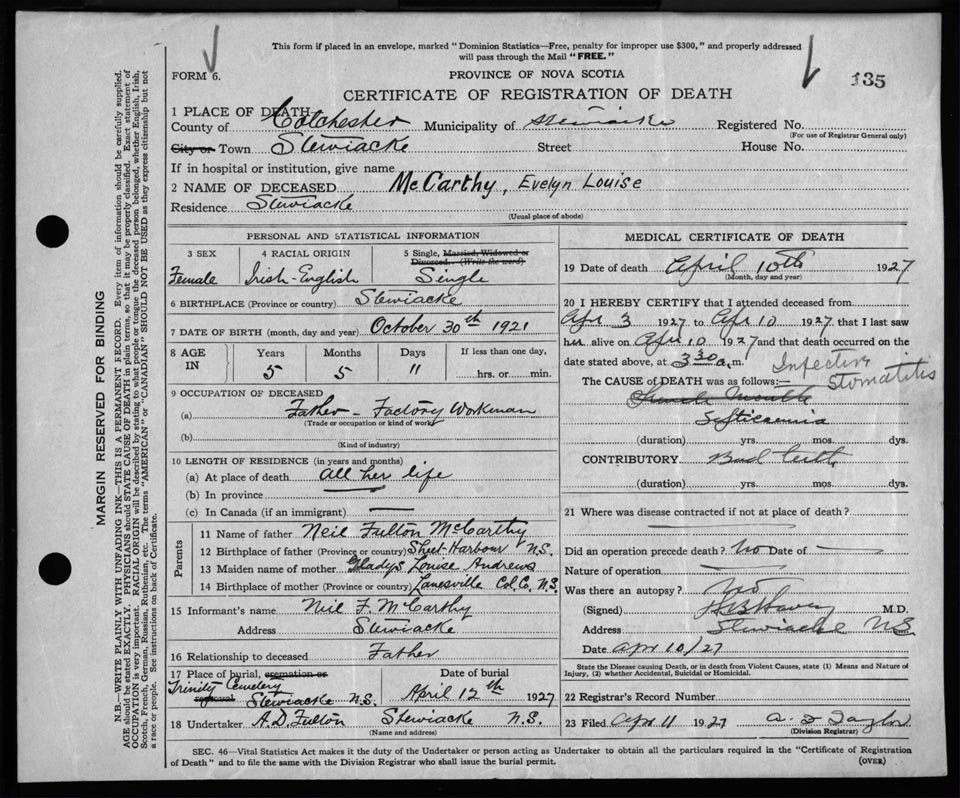 This form if placed in an envelope, marked "Dominion Statistics—Free, penalty for improper use $300," and properly addressed
will pass through the Mail "FREE."
FORM 6.
PROVINCE OF NOVA SCOTIA
135
CERTIFICATE OF REGISTRATION OF DEATH
1 PLACE OF DEATH
County of Colchester Municipality of Stewiacke Registered No.
(For use of Registrar General only)
City or Town Stewiacke Street House No.
If in hospital or institution, give name
2 NAME OF DECEASED McCarthy, Evelyn Louise
Residence Stewiacke
(Usual place of abode)
PERSONAL AND STATISTICAL INFORMATION
3 SEX 4 RACIAL ORIGIN 5 Single, Married, Widowed or
Divorced (Write the word)
Female Irish-English Single
6 BIRTHPLACE (Province or country) Stewiacke
7 DATE OF BIRTH (month, day and year) October 30th 1921
8 AGE IN Years Months Days If less than one day,
5 5 11 hrs. or min.
9 OCCUPATION OF DECEASED
(a) Father - Factory Workman
(Trade or occupation or kind of work)
(b)
(Kind of industry)
10 LENGTH OF RESIDENCE (in years and months)
(a) At place of death all her life
(b) In province
(c) In Canada (if an immigrant)
Parents
11 Name of father Neil Fulton McCarthy
12 Birthplace of father (Province or country) Sheet-Harbour N.S.
13 Maiden name of mother Gladys Louise Andrews
14 Birthplace of mother (Province or country) Lanesville Col. Co. N.S.
15 Informant's name Neil F. McCarthy
Address Stewiacke
16 Relationship to deceased Father
17 Place of burial, cremation or Date of burial
Trinity Cemetery
removal Stewiacke N.S. April 12th 1927
18 Undertaker A.D. Fulton Stewiacke N.S.
(Name and address)
MEDICAL CERTIFICATE OF DEATH
19 Date of death April 10th 1927
(Month, day and year)
20 I HEREBY CERTIFY that I attended deceased from
Apr 3 1927 to Apr 10 1927 that I last saw
her alive on Apr 10 1927 and that death occurred on the
date stated above, at 3 30 a. m.
Infective
Stomatitis
The CAUSE of DEATH was as follows:—
Trench Mouth
Septicaemia
(duration) yrs. mos. dys.
CONTRIBUTORY Bad teeth
(duration) yrs. mos. dys.
21 Where was disease contracted if not at place of death?
Did an operation precede death? No Date of
Nature of operation
Was there an autopsy? No
(Signed) M.D.
Address Stewiacke N.S.
Date Apr 10/27
State the Disease causing Death, or in death from Violent Causes, state (1) Means and Nature of
Injury, (2) whether Accidental, Suicidal or Homicidal.
22 Registrar's Record Number
23 Filed Apr 11 1927 Taylor
(Division Registrar)
SEC. 46—Vital Statistics Act makes it the duty of the Undertaker or person acting as Undertaker to obtain all the particulars required in the "Certificate of Registration
of Death" and to file the same with the Division Registrar who shall issue the burial permit. (OVER)
MARGIN RESERVED FOR BINDING
N.B.—WRITE PLAINLY WITH UNFADING INK—THIS IS A PERMANENT RECORD. Every item of information should be carefully supplied.
AGE should be stated EXACTLY. PHYSICIANS should STATE CAUSE OF DEATH in plain terms, so that it may be properly classified. Exact statement of
OCCUPATION is very important. RACIAL ORIGIN will be described by stating to what people or tongue the deceased person belonged, whether English, Irish,
Scotch, French, German, Russian, Ruthenian, etc. The terms "AMERICAN" or "CANADIAN" SHOULD NOT BE USED as they express citizenship but not
a race or people. See instructions on back of Certificate.